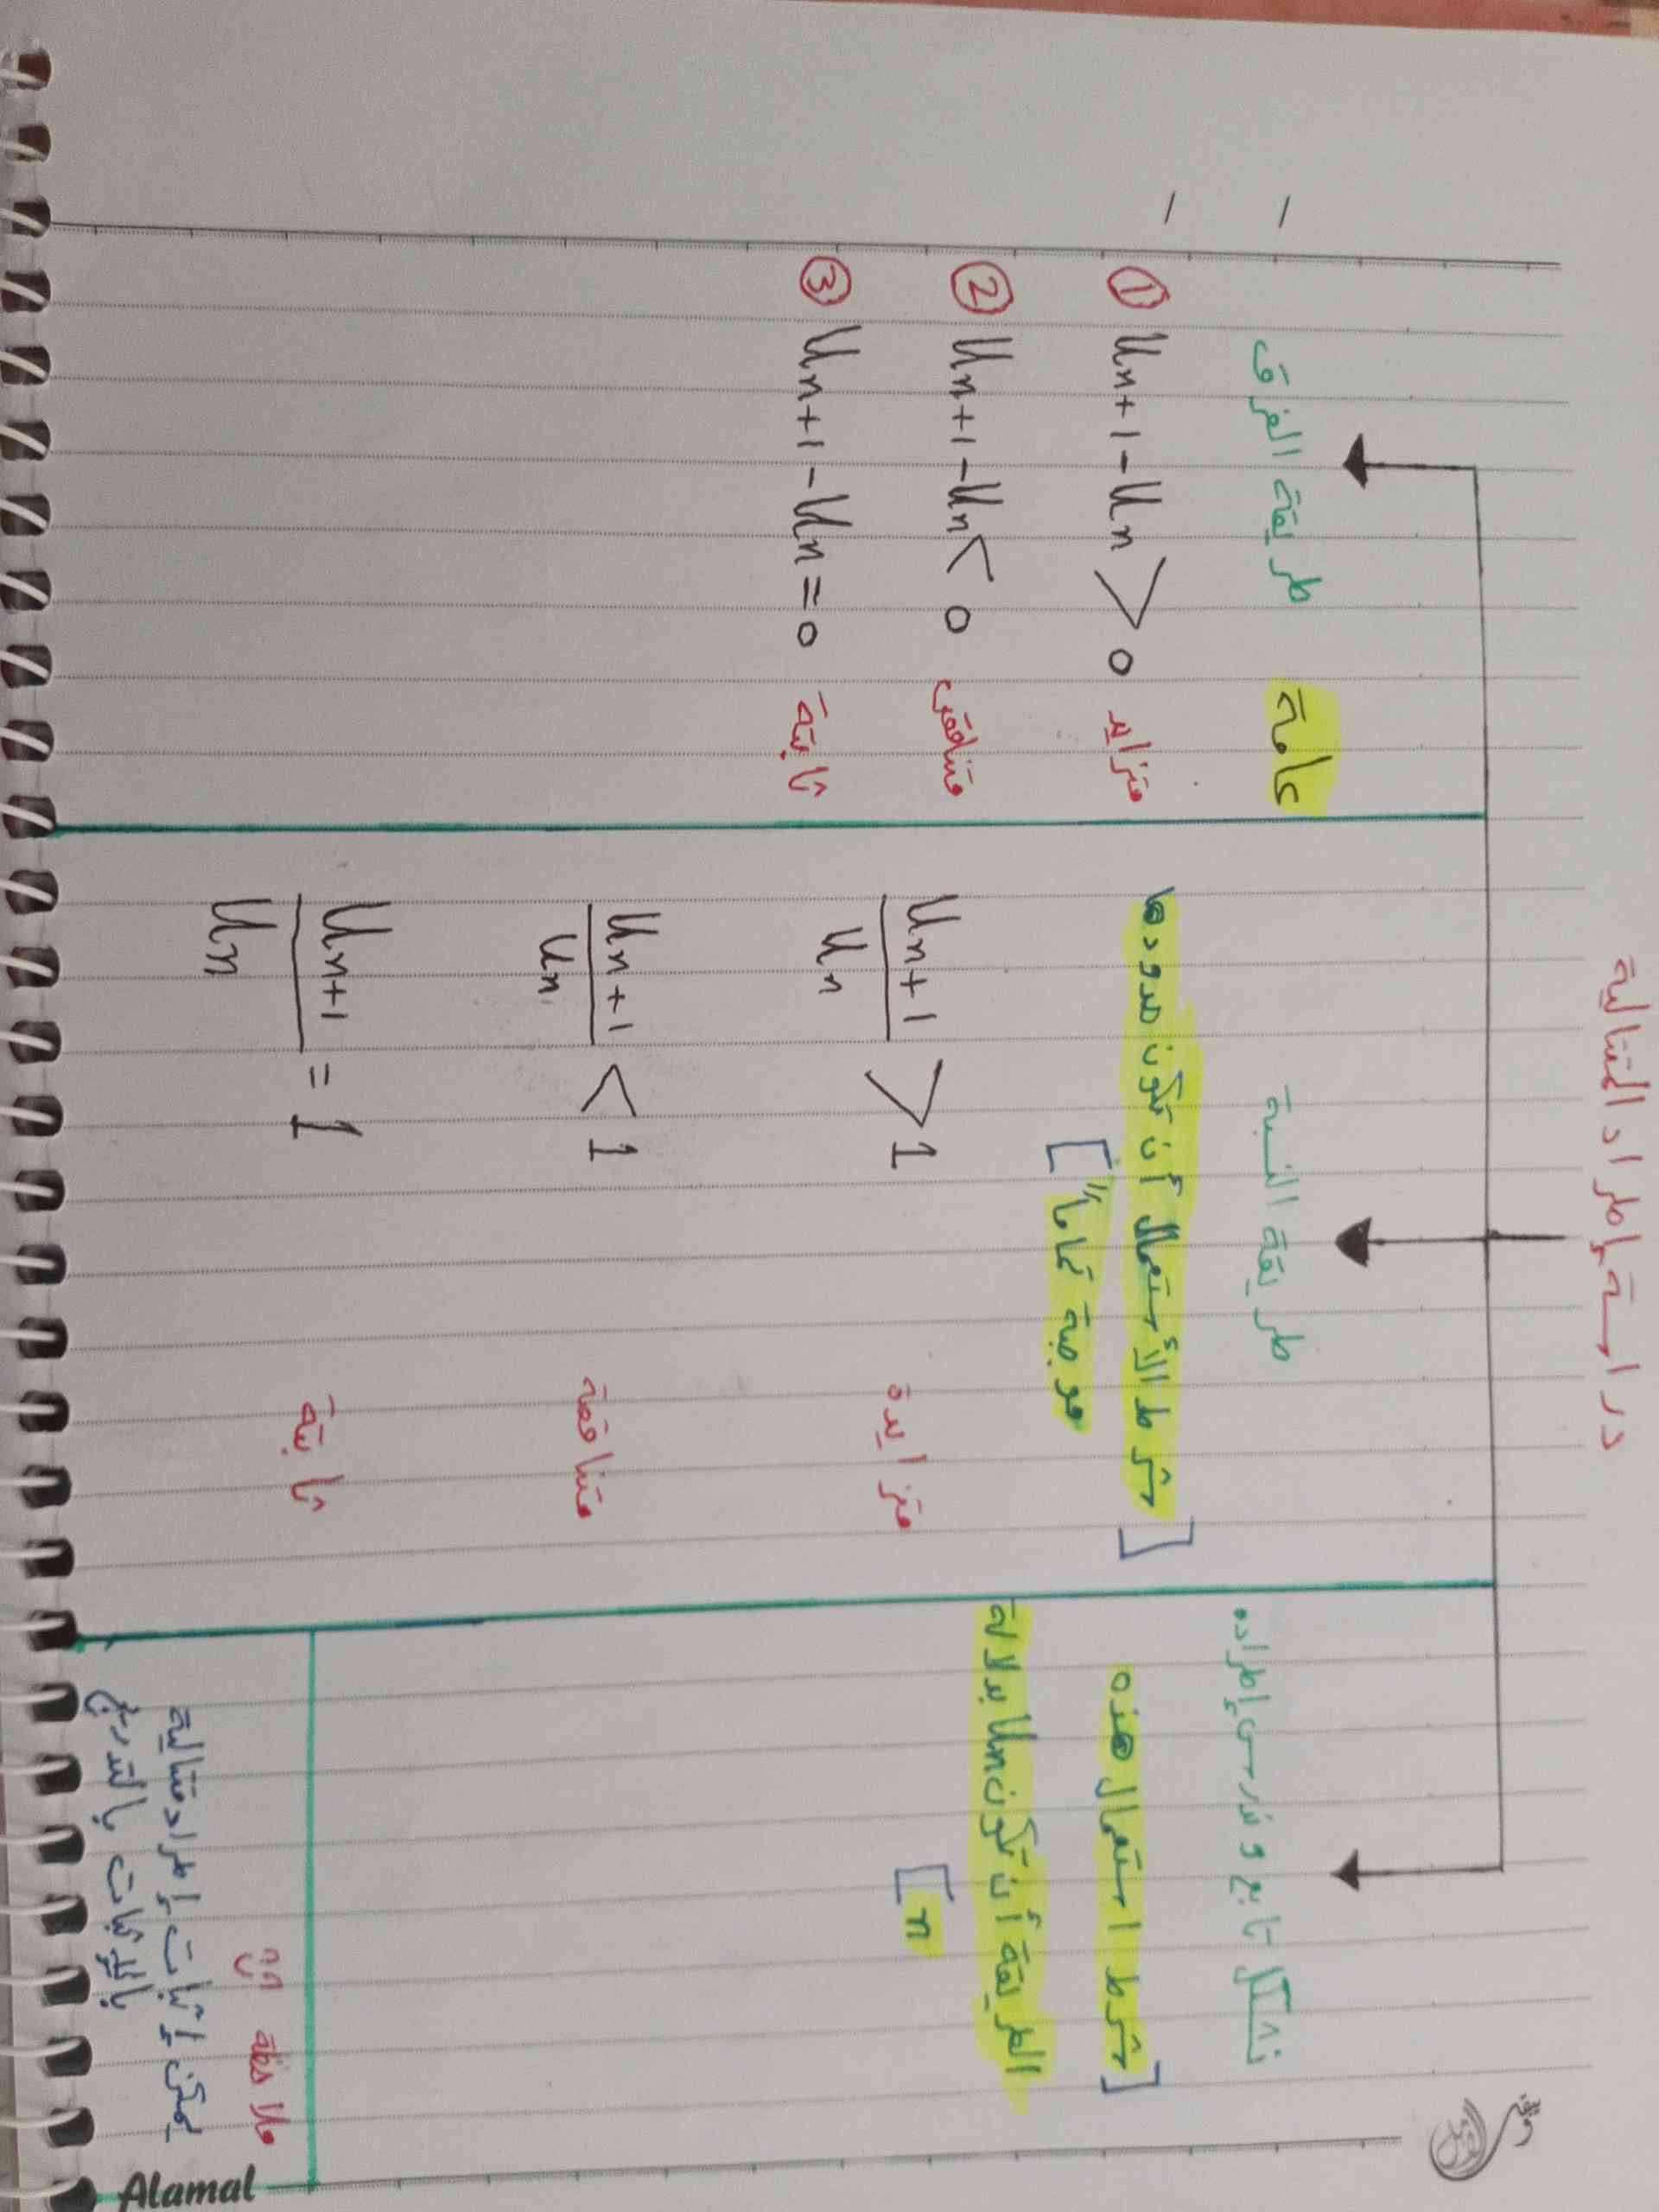 دراسة إطراد المتتالية
طريقة الفرق
عامة
① Un+1 - Un > 0 متزايد
② Un+1 - Un < 0 متناقص
③ Un+1 - Un = 0 ثابتة
طريقة النسبة
[شرط الأستعمال أن تكون حدودها
موجبة تماماً]
Un+1 / Un > 1 متزايدة
Un+1 / Un < 1 متناقصة
Un+1 / Un = 1 ثابتة
نشكل تابع و ندرس إطراده
[شرط استعمال هذه
الطريقة أن تكون Un بدلالة
n]
ملاحظة
يمكن إثبات إطراد متتالية
بالإثبات بالتدريج
Alamal